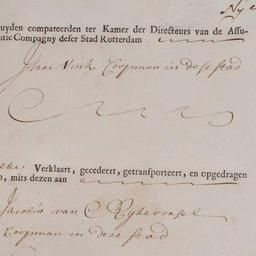 uyden compareerden ter Kamer der Directeurs van de Assu-
ntie Compagny deser Stad Rotterdam
Isaac Vink Coopman in dese stad
Verklaart, gecedeert, getransporteert, en opgedragen
n, mits dezen aan
Jacobus van
Coopman in dese stad